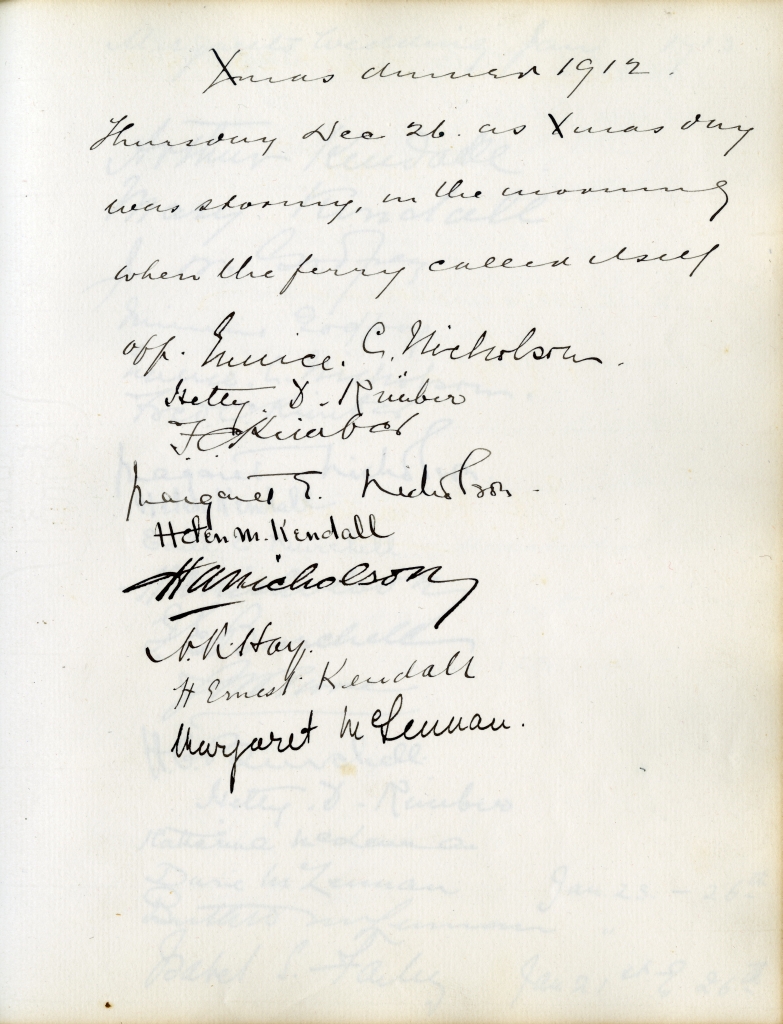 Xmas dinner 1912.
Thursday Dec 26. as Xmas day
was stormy, in the morning
when the ferry called itself
off. Eunice. C. Nicholson.
Hetty. D. Kimber
F. C. Kimber
Margaret E. Nicholson
Helen M. Kendall
HANicholson
Hay.
H Ernest Kendall
Margaret McLennan.